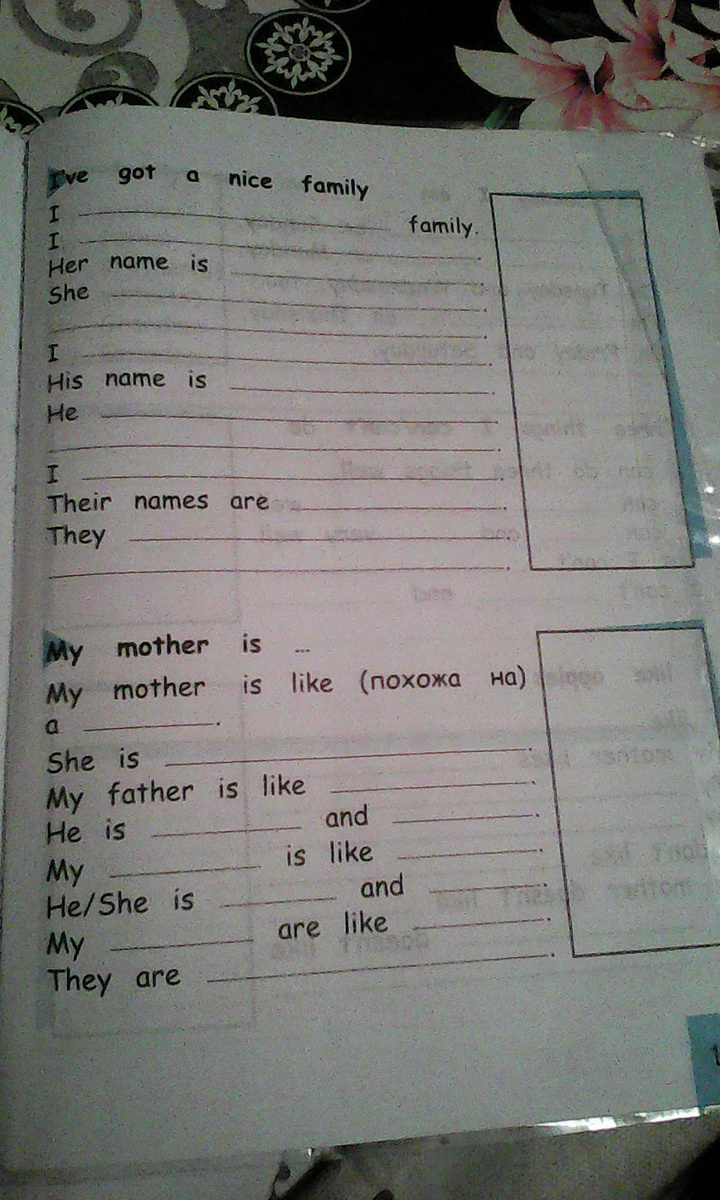 I've got a nice family
I ____________ family.
I ____________.
Her name is ____________.
She ____________.
____________.
I ____________.
His name is ____________.
He ____________
____________.
I ____________.
Their names are ____________.
They ____________.
____________.
My mother is ...
My mother is like (похожа на)
a ____________.
She is ____________.
My father is like ____________.
He is ____________ and ____________.
My ____________ is like ____________.
He/She is ____________ and ____________.
My ____________ are like ____________.
They are ____________.